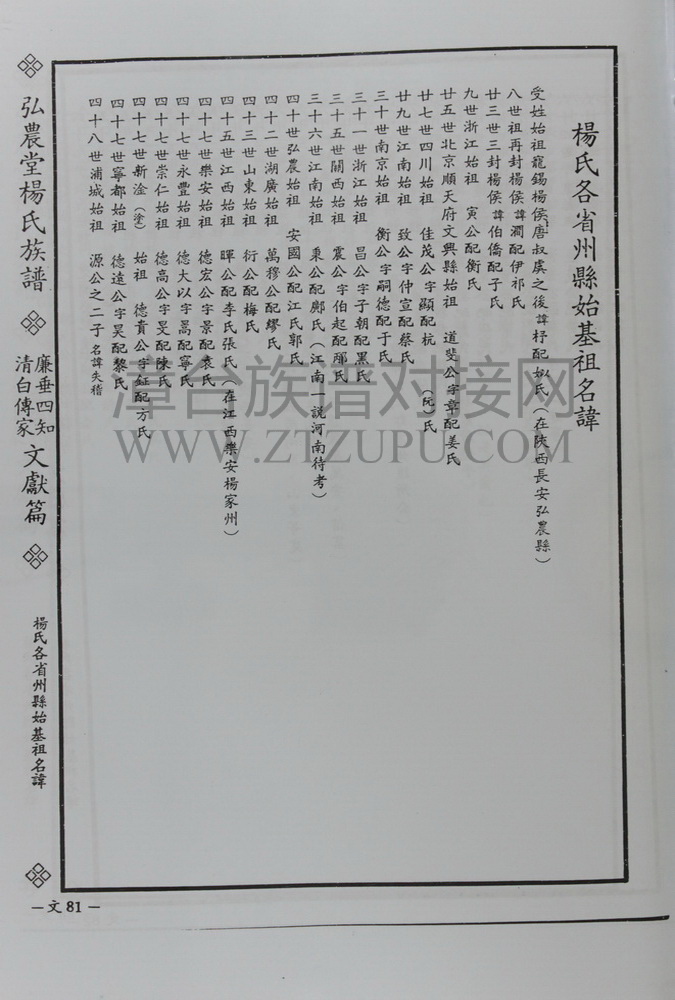 楊氏各省州縣始基祖名諱
受姓始祖寵錫楊侯唐叔虞之後諱杼配姒氏（在陝西長安弘農縣）
八世祖再封楊侯諱澗配伊祁氏
廿三世三封楊侯諱伯僑配子氏
九世浙江始祖 寅公配衡氏
廿五世北京順天府文興縣始祖 道斐公字章配姜氏
廿七世四川始祖 佳茂公字顯配杭（阮）氏
廿九世江南始祖 致公字仲宣配蔡氏
三十世南京始祖 衡公字嗣德配于氏
三十一世浙江始祖 昌公字子朝配黑氏
三十五世關西始祖 震公字伯起配
三十六世江南始祖 秉公配鄺氏（江南一說河南待考）
四十世弘農始祖 安國公配江氏郭氏
四十二世湖廣始祖 萬穆公配繆氏
四十三世山東始祖 衍公配梅氏
四十五世江西始祖 暉公配李氏張氏（在江西樂安楊家州）
四十七世樂安始祖 德宏公字景配袁氏
四十七世永豐始祖 德大以字暠配寧氏
四十七世崇仁始祖 德高公字旻配陳氏
四十七世新淦（塗）始祖 德貴公字鉦配方氏
四十七世寧都始祖 德遠公字昊配黎氏
四十八世浦城始祖 源公之二子 名諱失稽
弘農堂楊氏族譜
廉垂四知
清白傳家
文獻篇
楊氏各省州縣始基祖名諱
－文 81－
漳台族谱对接网
WWW.ZTZUPU.COM